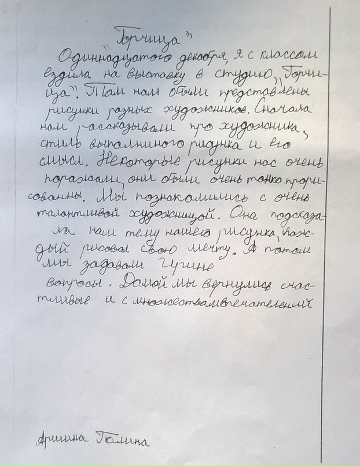 "Горчица"
Одиннадцатого декабря, я с классом
ездила на выставку в студию "Горчи-
ца". Там нам были представлены
рисунки разных художников. Сначала
нам рассказывали про художника,
стиль выполнимого рисунка и его
смысл. Некоторые рисунки нас очень
поражали, они были очень тонко прори-
сованны. Мы познакомились с очень
талантливой художницой. Она подсказа-
ла нам тему нашего рисунка, каж-
дый рисовал свою мечту. А потом
мы задавали Ирине
вопросы. Домой мы вернулись счас-
тливые и с множеством впечатлений
Аришина Полина